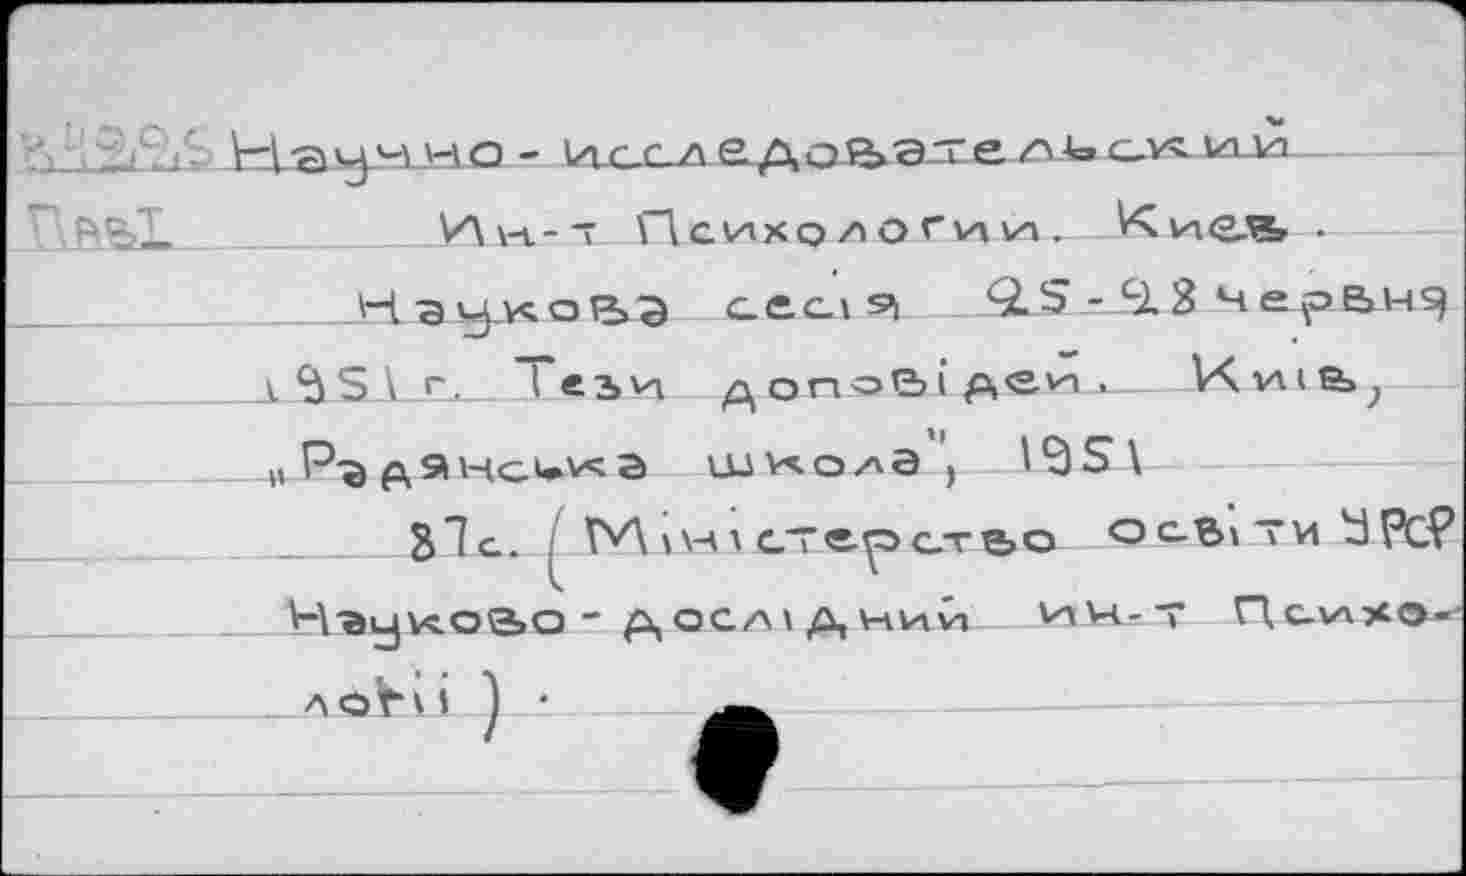 Научно-исследовательский
Ин-т Психологии. Киев.
Наукова сесія 25-28 червня
1951 г. Тези доповідей. Київ,
„Радянська школа", 1951
87с. (Міністерство освіти УРСР
Науково-дослідний ин-т Психо-
логіі).